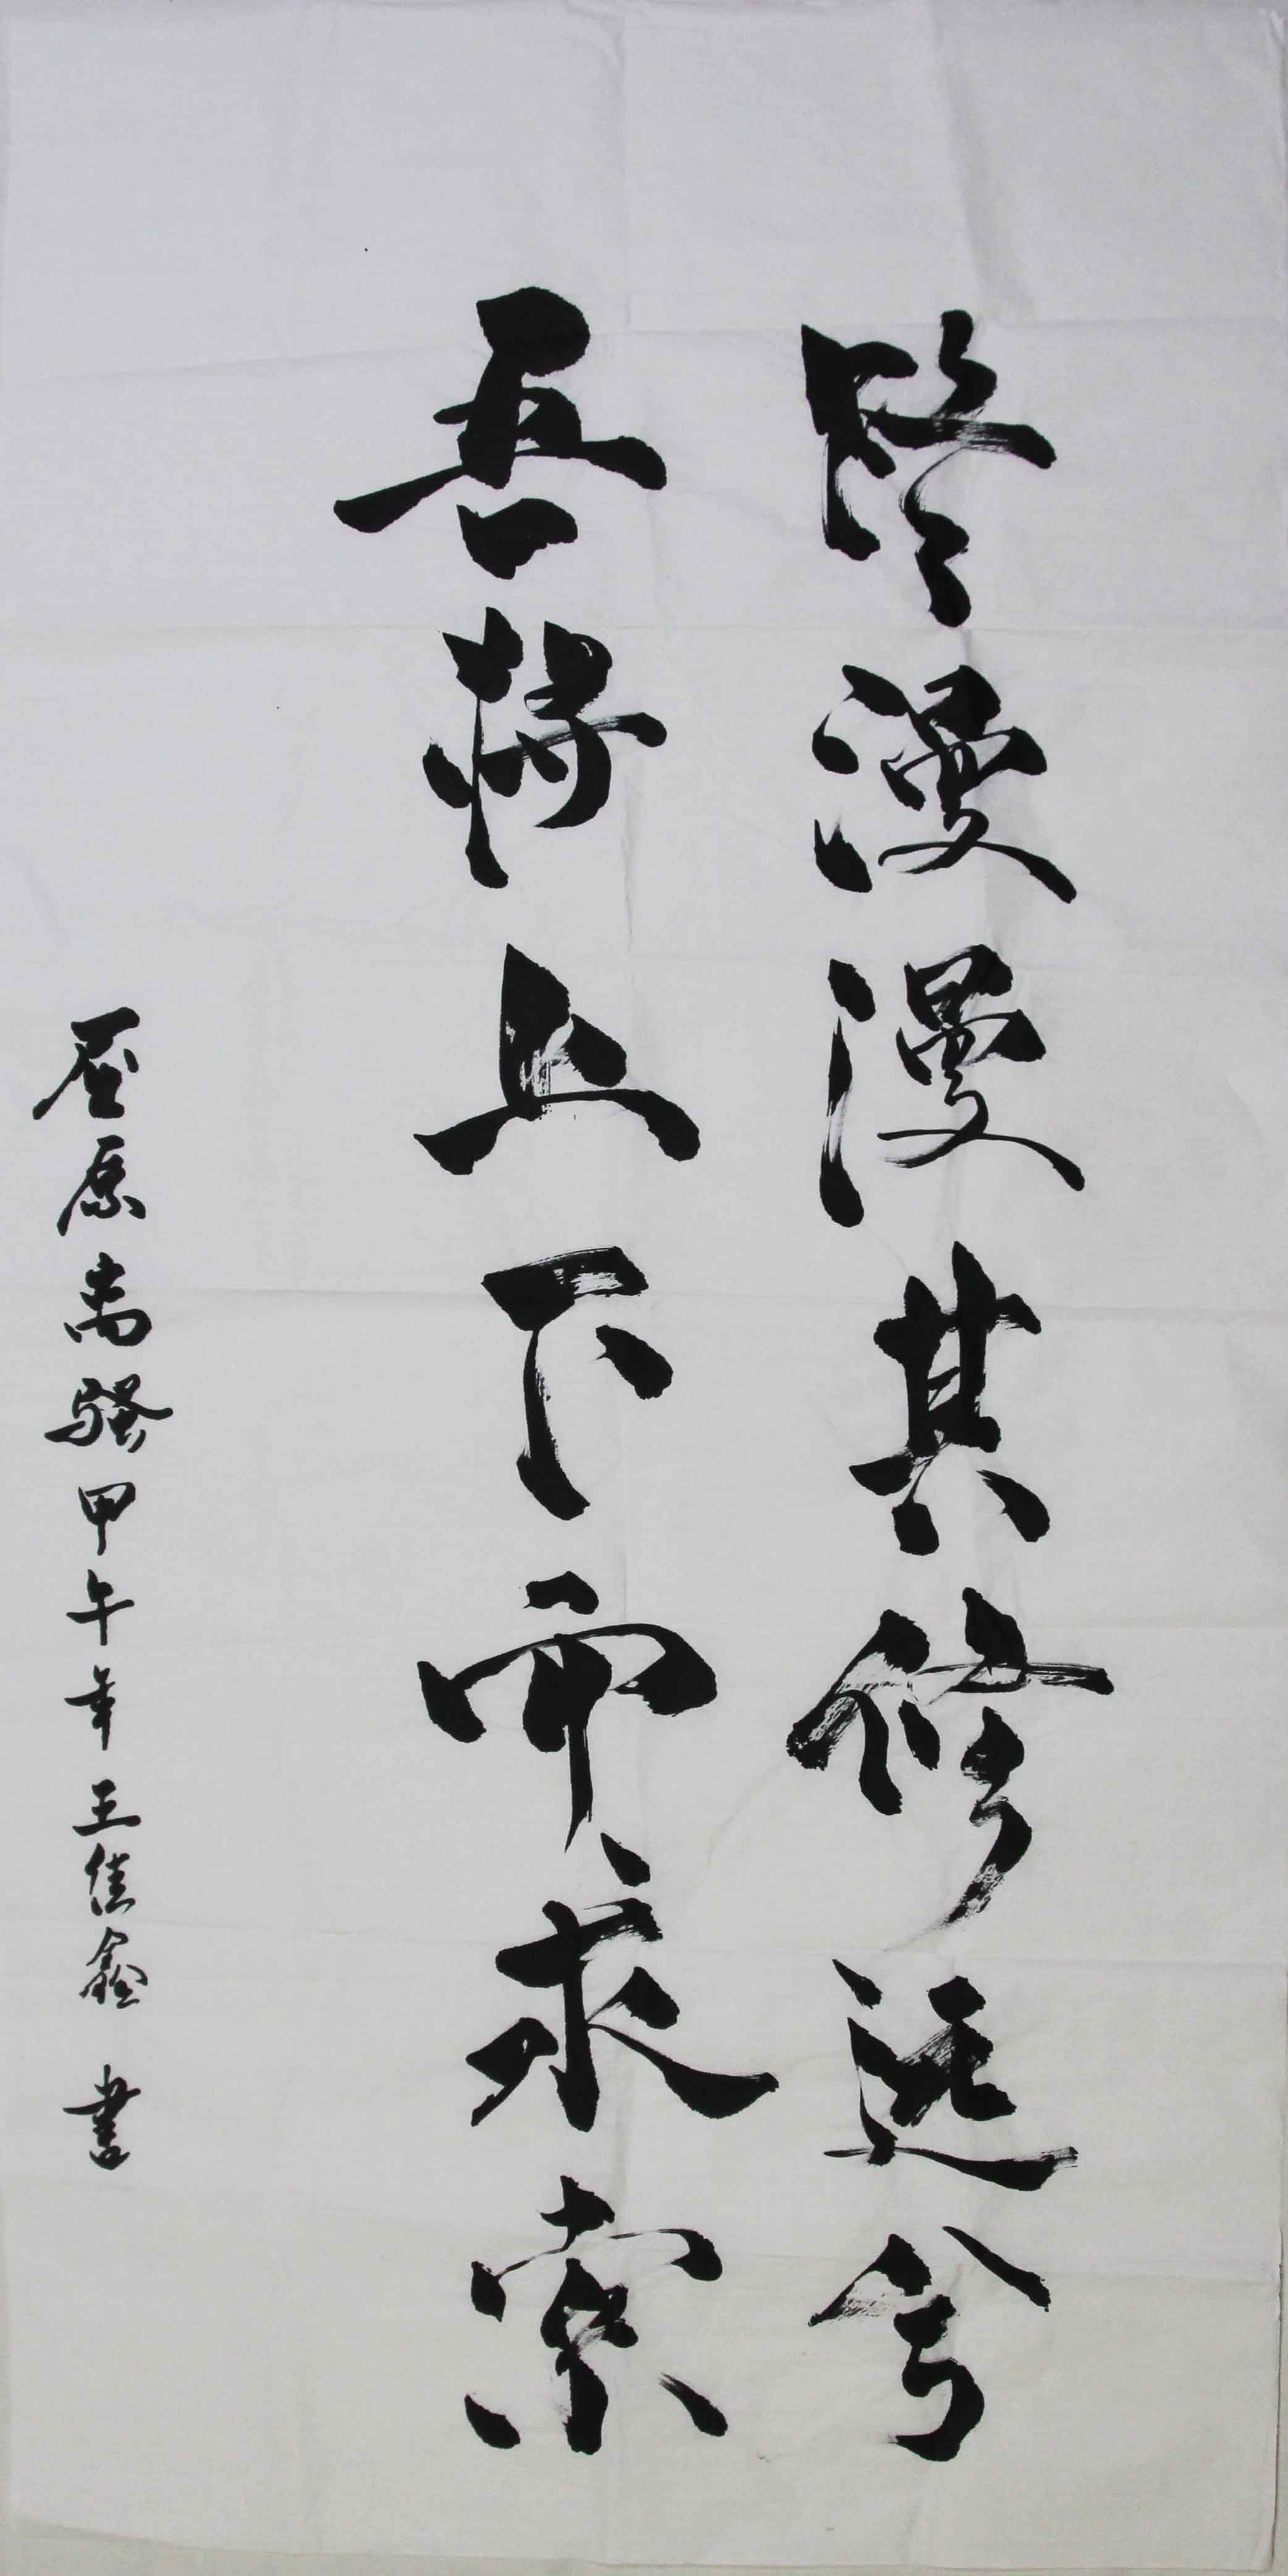 路漫漫其修远兮
吾将上下而求索
屈原离骚甲午年王佳鑫書